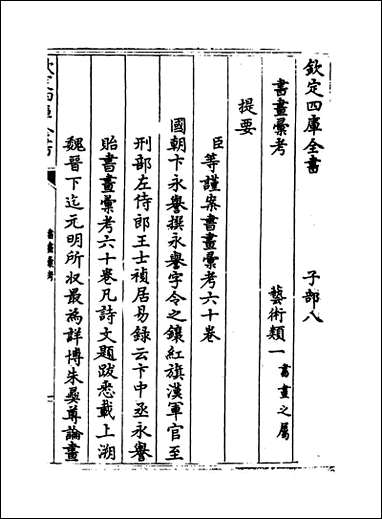 欽定四庫全書　子部八
書畫彙考　藝術類一書畫之屬
提要
臣等謹案書畫彙考六十卷
國朝卞永譽撰永譽字令之鑲紅旗漢軍官至
刑部左侍郎王士禎居易錄云卞中丞永譽
貽書畫彙考六十卷凡詩文題跋悉載上溯
魏晉下迄元明所収最為詳博朱彞尊論畫
書畫彙考